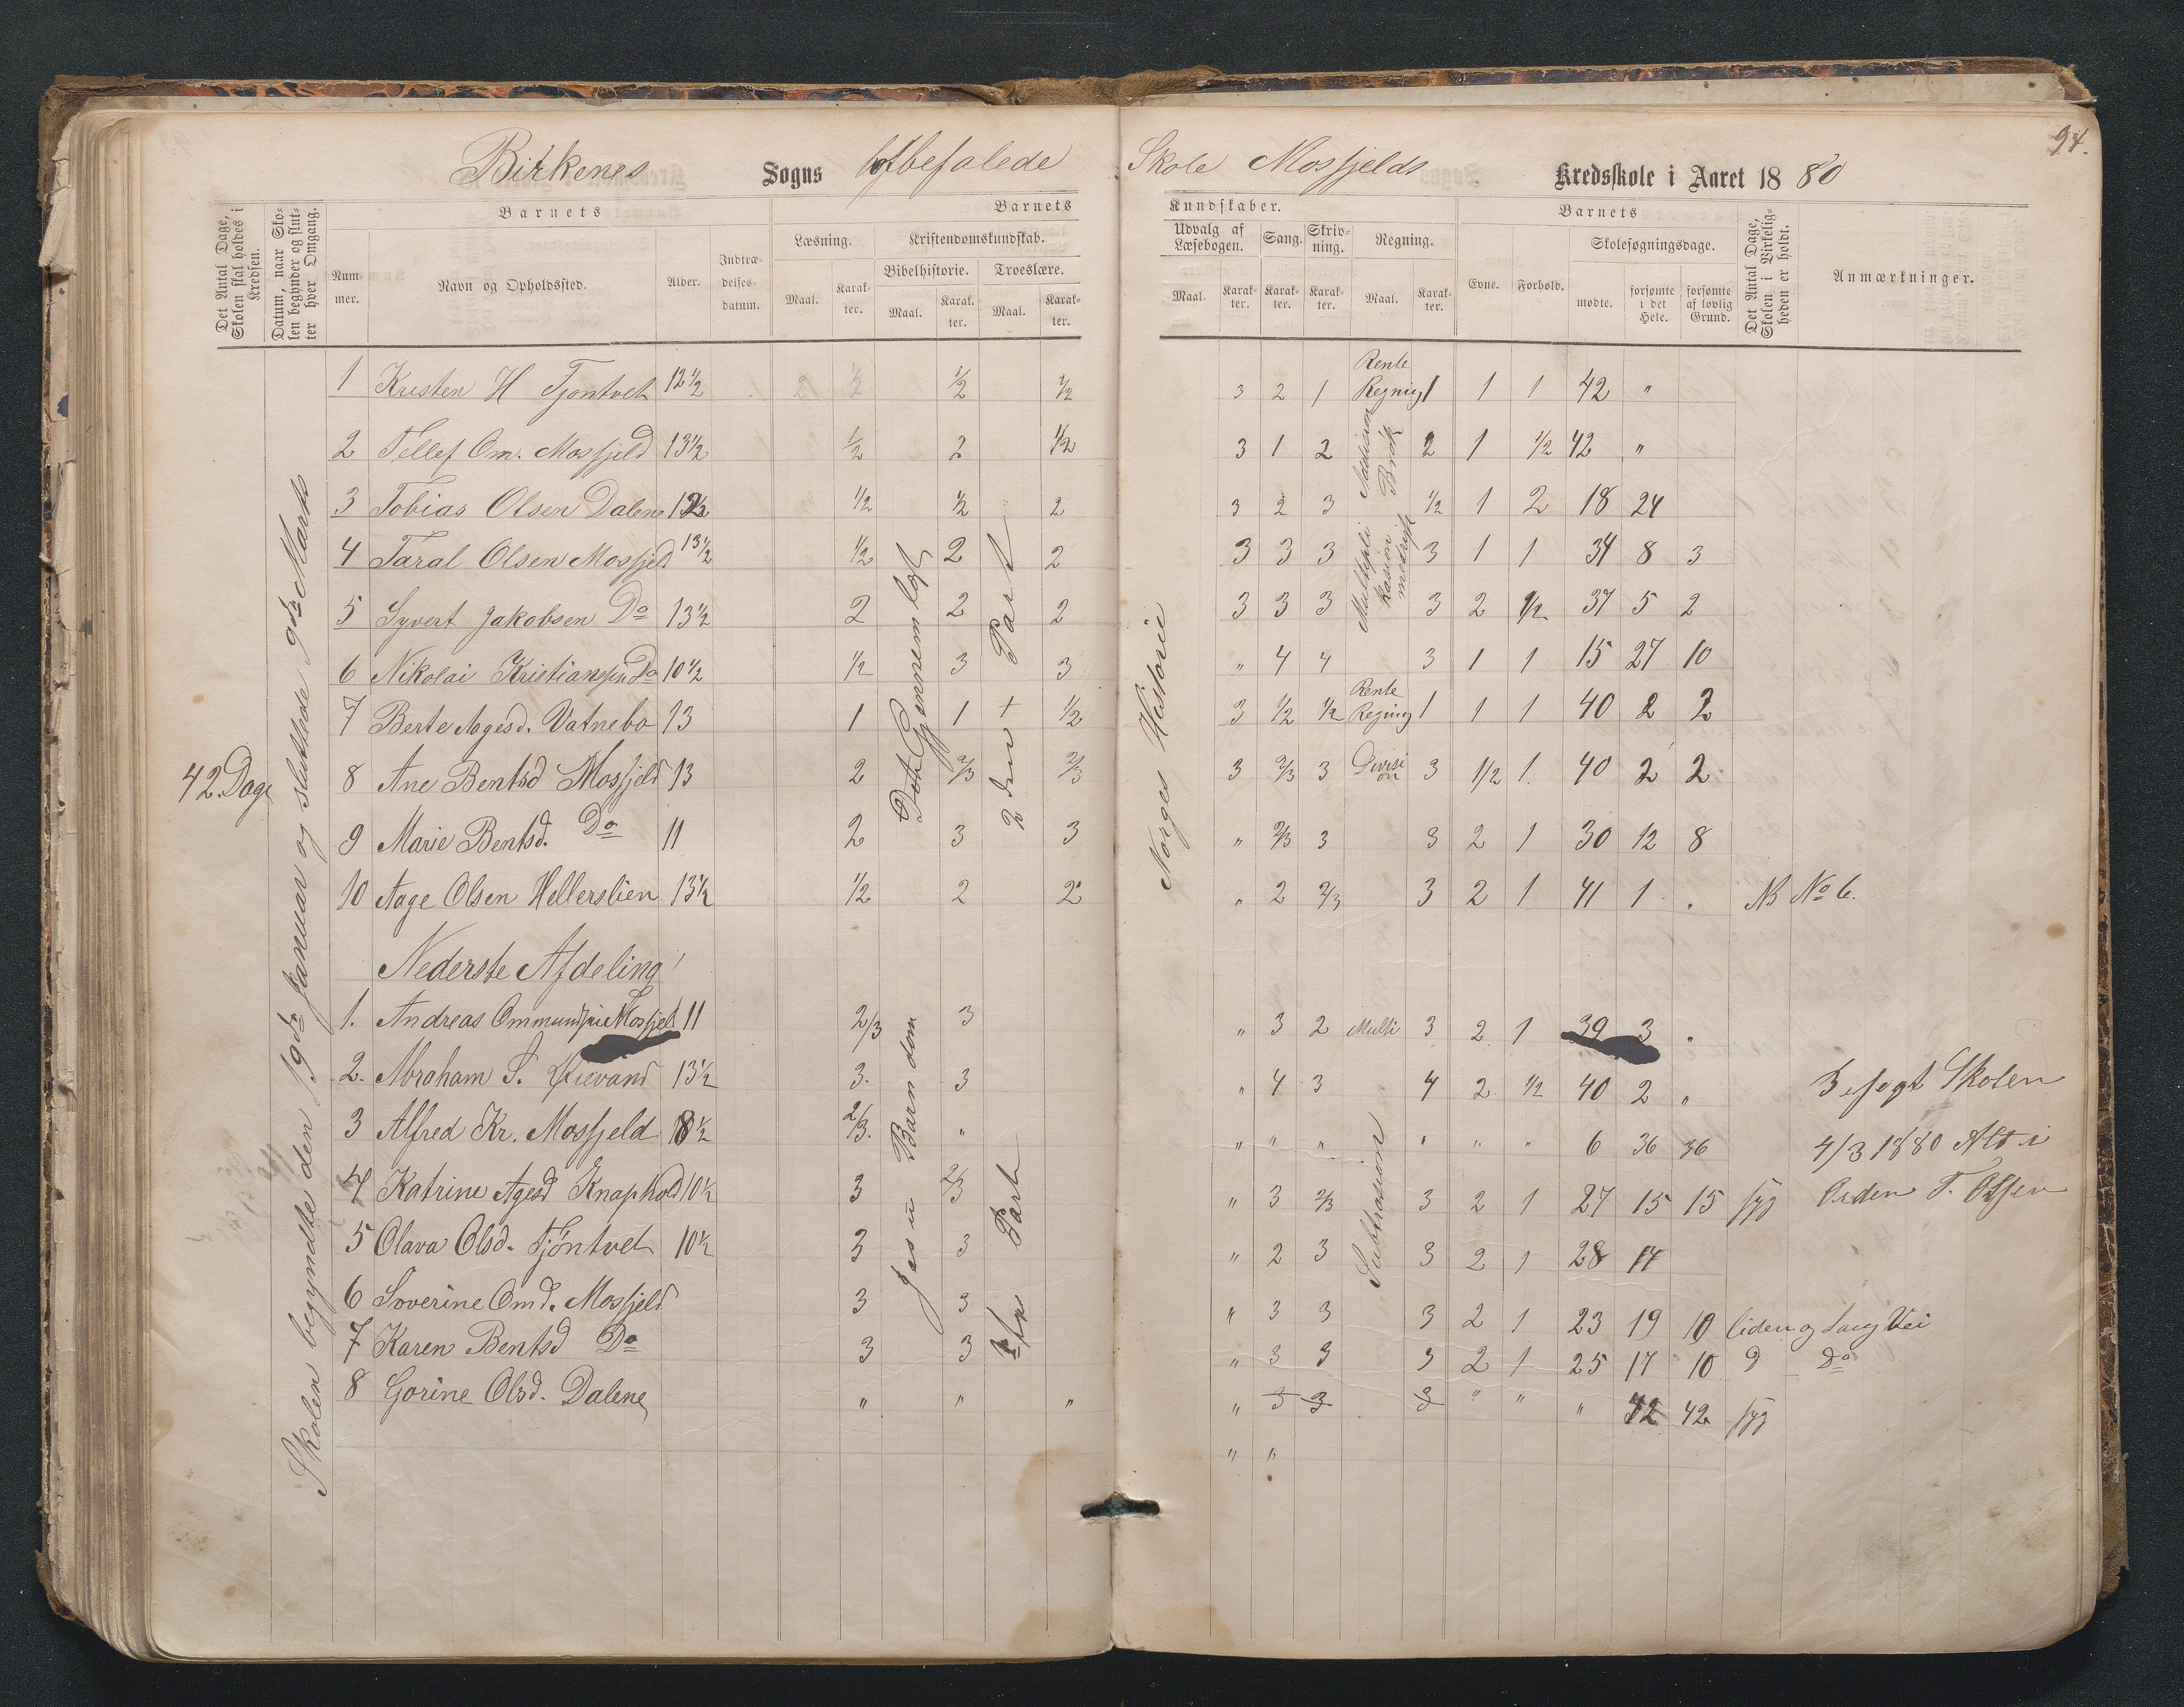 94.
Birkenes Sogns befalede Skole Mosfjelds Kredsskole i Aaret 1880
Det Antal Dage, Skolen skal holdes i Kredsen.
Datum, naar Skolen begynder og slutter hver Omgang.
Barnets
Nummer.
Navn og Opholdssted.
Alder.
Indtrædelsesdatum.
Barnets
Læsning.
Maal.
Karakter.
Kristendomskundskab.
Bibelhistorie.
Maal.
Karakter.
Troeslære.
Maal.
Karakter.
Kundskaber.
Udvalg af Læsebogen.
Maal.
Karakter.
Sang.
Karakter.
Skrivning.
Karakter.
Regning.
Maal.
Karakter.
Barnets
Evne.
Forhold.
Skolesøgningsdage.
mødte.
forsømte i det Hele.
forsømte af lovlig Grund.
Det Antal Dage, Skolen i Virkeligheden er holdt.
Anmærkninger.
42 Dage
Skolen begyndte den 19de Januar og sluttede 9de Marts
Det Gjennemlagt
2den Part
Norges Historie
1 Kristen H Tjøntvet 12½ 2 ½ ½ ½ 3 2 1 Rente Regnig 1 1 1 42 "
2 Tellef Om. Mosfjeld 13½ ½ 2 ½ 3 1 2 Addision Brøk 2 1 ½ 42 "
3 Tobias Olsen Dalene 12½ ½ ½ 2 3 2 3 ½ 1 2 18 24
4 Taral Olsen Mosfjeld 13½ ½ 2 2 3 3 3 Multipli kasion 3 1 1 34 8 3
5 Syvert Jakobsen Do 13½ 2 2 2 3 3 3 3 2 ½ 37 5 2
6 Nikolai Kristiansen Do 10½ ½ 3 3 " 4 4 3 1 1 15 27 10
7 Berte Aagesd. Vatnebo 13 1 1 + ½ 3 ½ ½ Rente Regnig 1 1 1 40 2 2
8 Ane Bentsd Mosfjeld 13 2 2/3 2/3 3 2/3 3 Divisi on 3 1/2 1. 40 2 2
9 Marie Bentsd. Do 11 2 3 3 " 2/3 3 3 2 1 30 12 8
10 Aage Olsen Hellerslien 13½ ½ 2 2 " 2 2/3 3 2 1 41 1 " NB No 6.
Nederste Afdeling
Jesu Barndom
Part
Subtrasion
1. Andreas Ommundsen Mosfjel 11 2/3 3 " 3 2 Multi 3 2 1 39 3 "
2. Abraham S. 13½ 3. 3 " 4 3 4 2 ½ 40 2 " Besøgt Skolen
3 Alfred Kr. Mosfjeld 8½ 2/3. " " " " " " " 6 36 36 4/3 1880 Alt i
4 Katrine Agesd Knaphold 10½ 3 2/3 " 3 2/3 3 2 1 27 15 15 syg Orden T. Olsen
5 Olava Olsd. Tjøntvet 10½ 3 3 " 2 3 3 2 1 28 14
6 Soverine Omd. Mosfjeld 3 3 " 3 3 3 2 1 23 19 10 liden og lang Vei
7 Karen Bentsd Do 3 3 " 3 3 3 2 1 25 17 10 Do
8 Gorine Olsd. Dalene " " " " 3 3 3 " " " 42 42 syg
" "